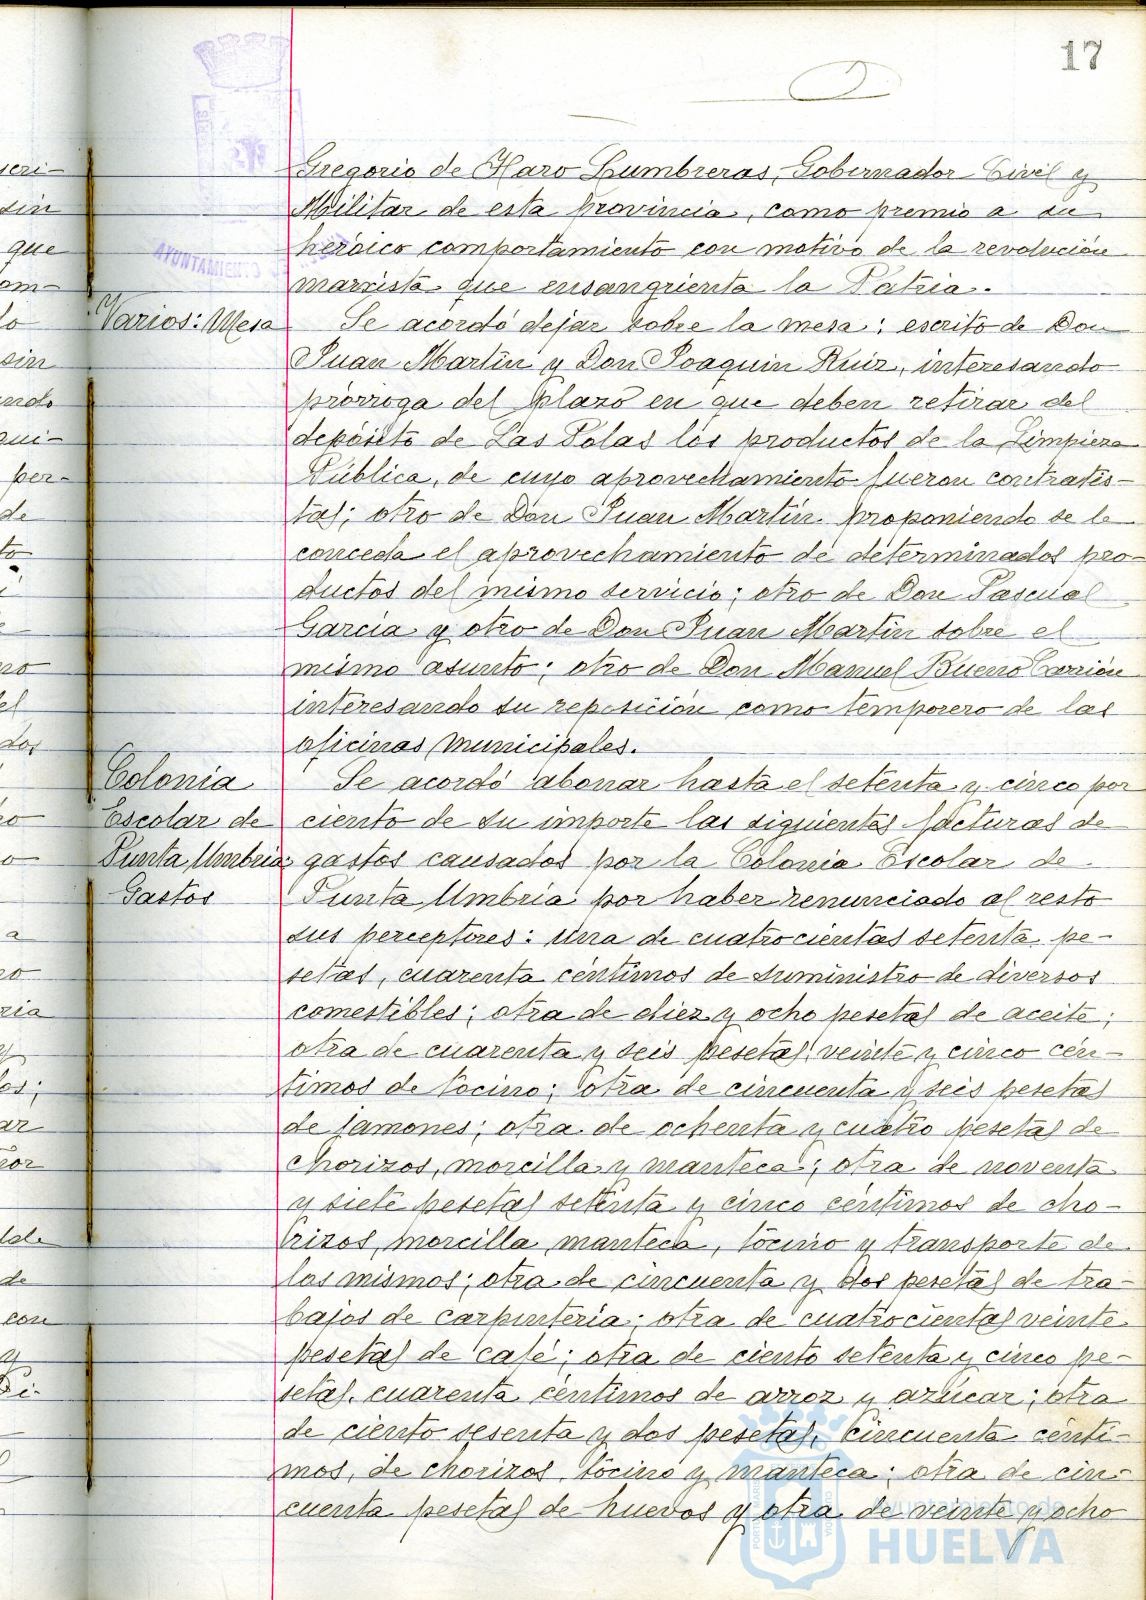 17
Gregorio de Haro Lumbreras, Gobernador Civil y
Militar de esta provincia, como premio a su
heróico comportamiento con motivo de la revolución
marxista que ensangrienta la Patria.
Varios: Mesa
Se acordó dejar sobre la mesa: escrito de Don
Juan Martín y Don Joaquin Ruiz, interesando
prórroga del plazo en que deben retirar del
depósito de Las Polas los productos de la Limpieza
Pública, de cuyo aprovechamiento fueron contratis-
tas; otro de Don Juan Martín proponiendo se le
conceda el aprovechamiento de determinados pro-
ductos del mismo servicio; otro de Don Pascual
García y otro de Don Juan Martín sobre el
mismo asunto; otro de Don Manuel Bueno Carrión
interesando su reposición como temporero de las
oficinas municipales.
Colonia
Escolar de
Punta Umbria:
Gastos
Se acordó abonar hasta el setenta y cinco por
ciento de su importe las siguientes facturas de
gastos causados por la Colonia Escolar de
Punta Umbría por haber renunciado al resto
sus perceptores: una de cuatrocientas setenta pe-
setas, cuarenta céntimos de suministro de diversos
comestibles; otra de diez y ocho pesetas de aceite;
otra de cuarenta y seis pesetas veinte y cinco cén-
timos de tocino; otra de cincuenta y seis pesetas
de jamones; otra de ochenta y cuatro pesetas de
chorizos, morcilla y manteca; otra de noventa
y siete pesetas setenta y cinco céntimos de cho-
rizos, morcilla, manteca, tocino y transporte de
los mismos; otra de cincuenta y dos pesetas de tra-
bajos de carpintería; otra de cuatrocientas veinte
pesetas de café; otra de ciento setenta y cinco pe-
setas, cuarenta céntimos de arroz y azúcar; otra
de ciento sesenta y dos pesetas, cincuenta cénti-
mos, de chorizos, tocino y manteca; otra de cin-
cuenta pesetas de huevos y otra de veinte y ocho
AYUNTAMIENTO
Ayuntamiento de
HUELVA